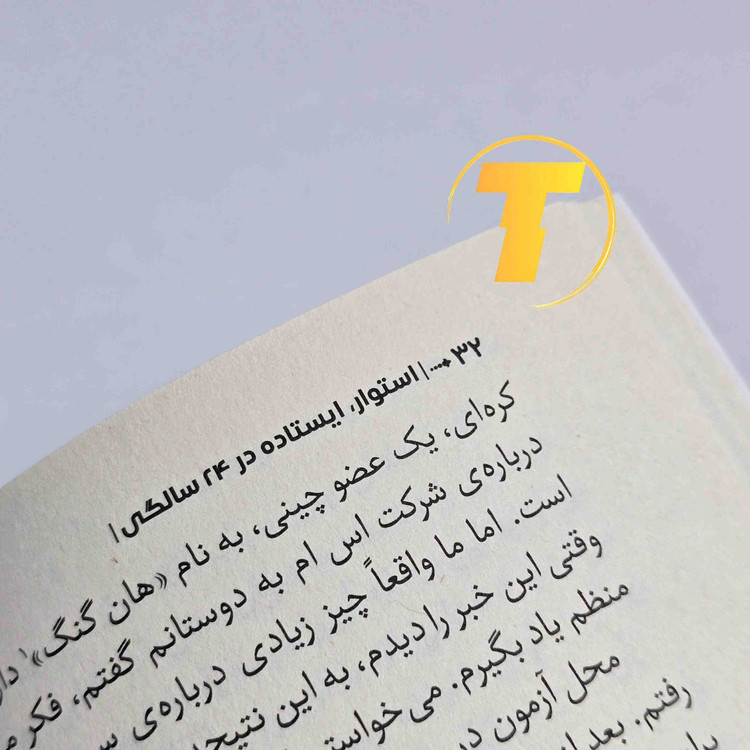 T
۳۲ | استوار، ایستاده در ۲۴ سالگی |
کره‌ای، یک عضو چینی، به نام «هان گنگ»۱
درباره‌ی شرکت اس ام به دوستانم گفتم، فکر
است. اما ما واقعاً چیز زیادی درباره‌ی
وقتی این خبر را دیدم، به این
منظم یاد بگیرم. می‌خواستم
محل آزمون
رفتم. بعد